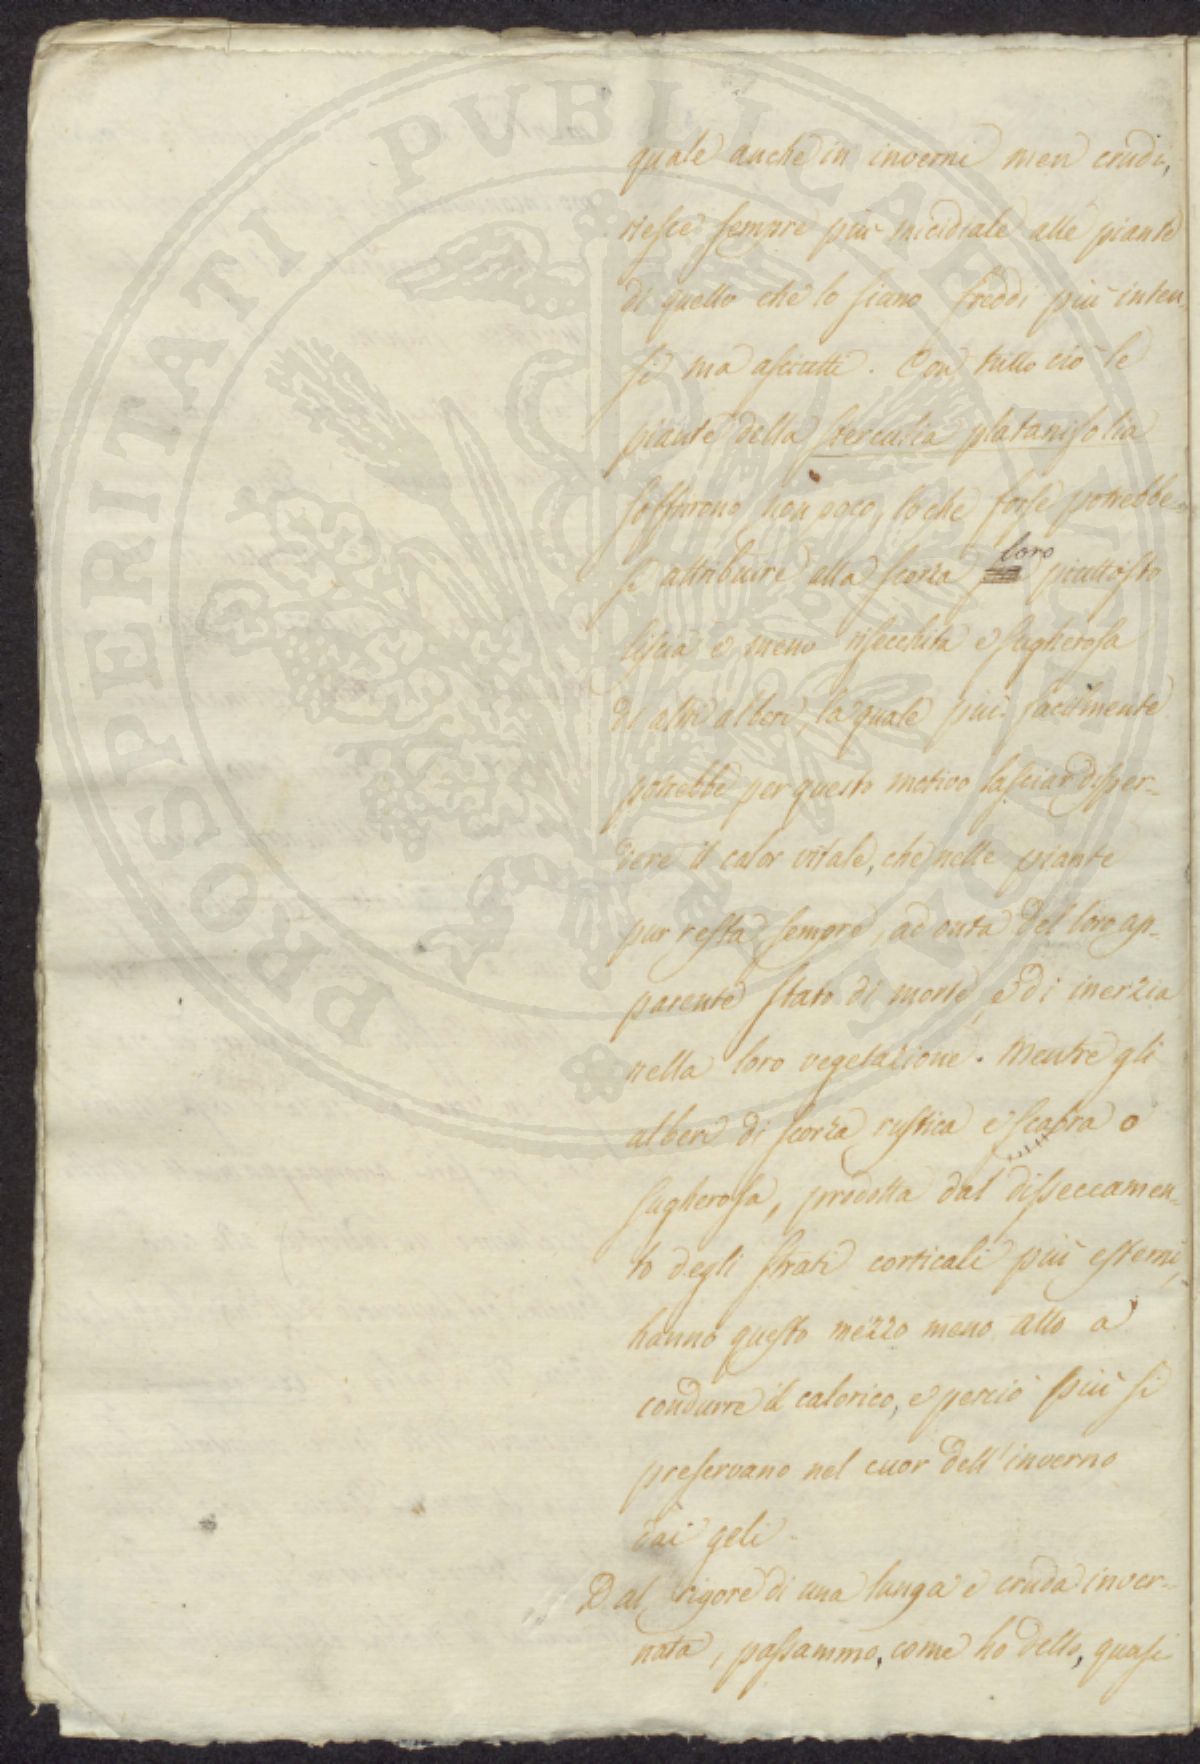 PROSPERITATI PUBLICAE
quale anche in inverni men crudi,
riesce sempre più micidiale alle piante
di quello che lo siano freddi più inten
si ma asciutti. Con tutto ciò le
piante della stercutia platanifolia
soffrirono non poco, loche forse potrebbe=
si attribuire alla scorza loro piuttosto
liscia e meno risecchita e sugherosa
di altri alberi, la quale più facilmente
potrebbe per questo motivo lasciar disper=
dere il calor vitale, che nelle piante
pur resta sempre, ad onta del loro ap=
parente stato di morte, e di inerzia
nella loro vegetazione. Mentre gli
alberi di scorza rustica e scabra o
sugherosa, prodotta dal disseccamen=
to degli strati corticali più esterni,
hanno questo mezzo meno atto a
condurre il calorico, e perciò più si
preservano nel cuor dell'inverno
dai geli.
Dal rigore di una lunga e cruda inver=
nata, passammo, come ho detto, quasi